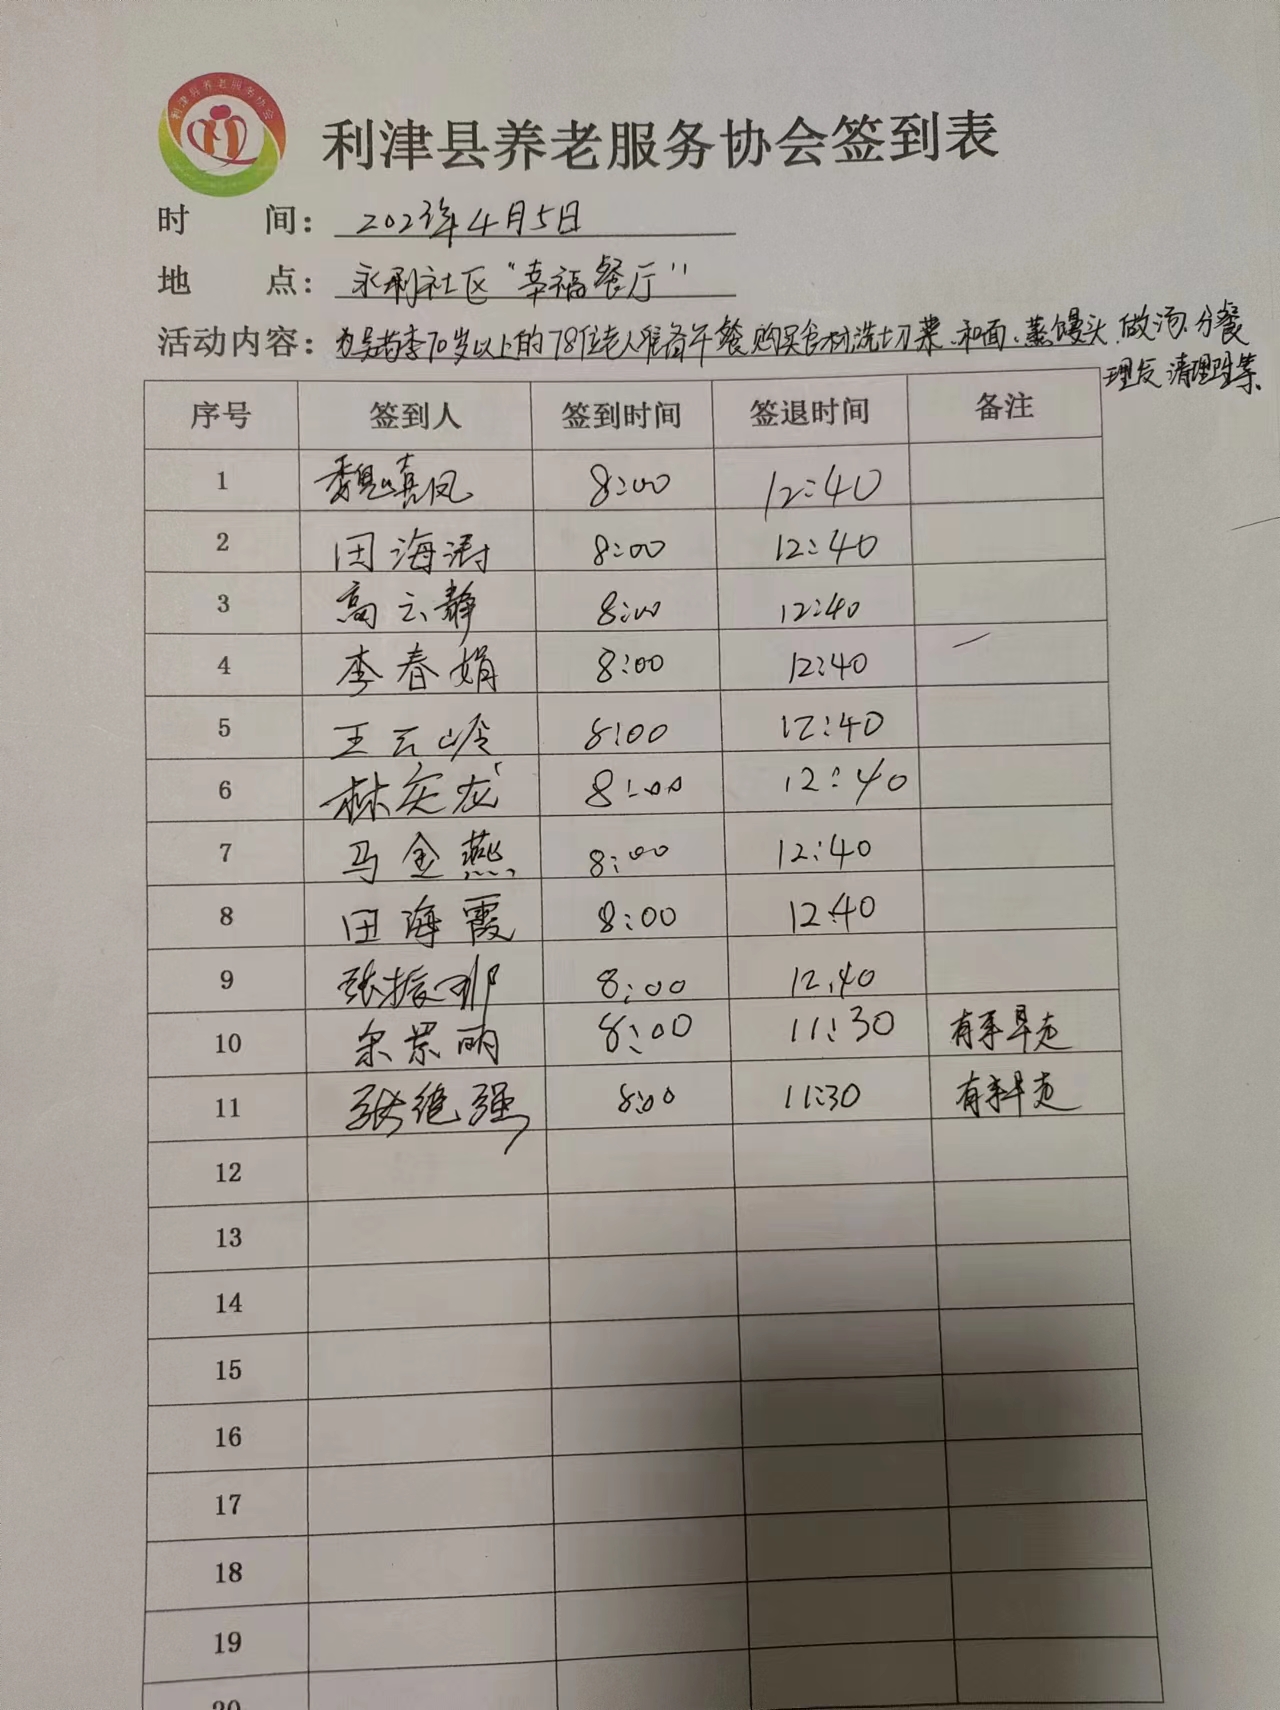 利津县养老服务协会
利津县养老服务协会签到表
时 间: 2023年4月5日
地 点: 永利社区"幸福餐厅"
活动内容: 为 70岁以上的78位老人准备午餐 购买食材洗切菜、和面、蒸馒头、做汤、分餐
理发 清理 等
序号 签到人 签到时间 签退时间 备注
1 魏 凤 8:00 12:40
2 田海涛 8:00 12:40
3 高云静 8:00 12:40
4 李春娟 8:00 12:40
5 王云岭 8:00 12:40
6 林 龙 8:00 12:40
7 马金燕 8:00 12:40
8 田海霞 8:00 12:40
9 张振 8:00 12.40
10 景丽 8:00 11:30 有事早走
11 张 强 8:00 11:30 有事早走
12
13
14
15
16
17
18
19
20